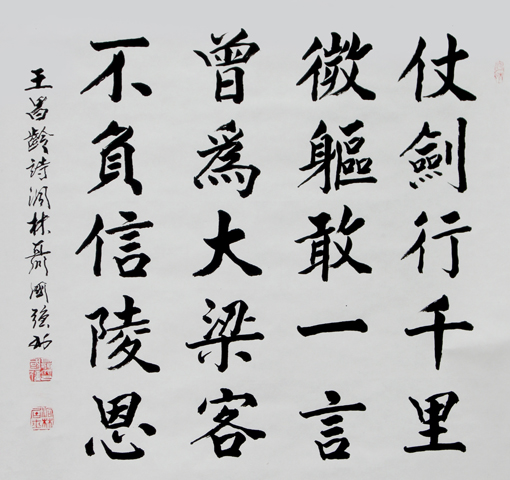 仗劍行千里
微軀敢一言
曾為大梁客
不負信陵恩
王昌齡詩河林聶國強书